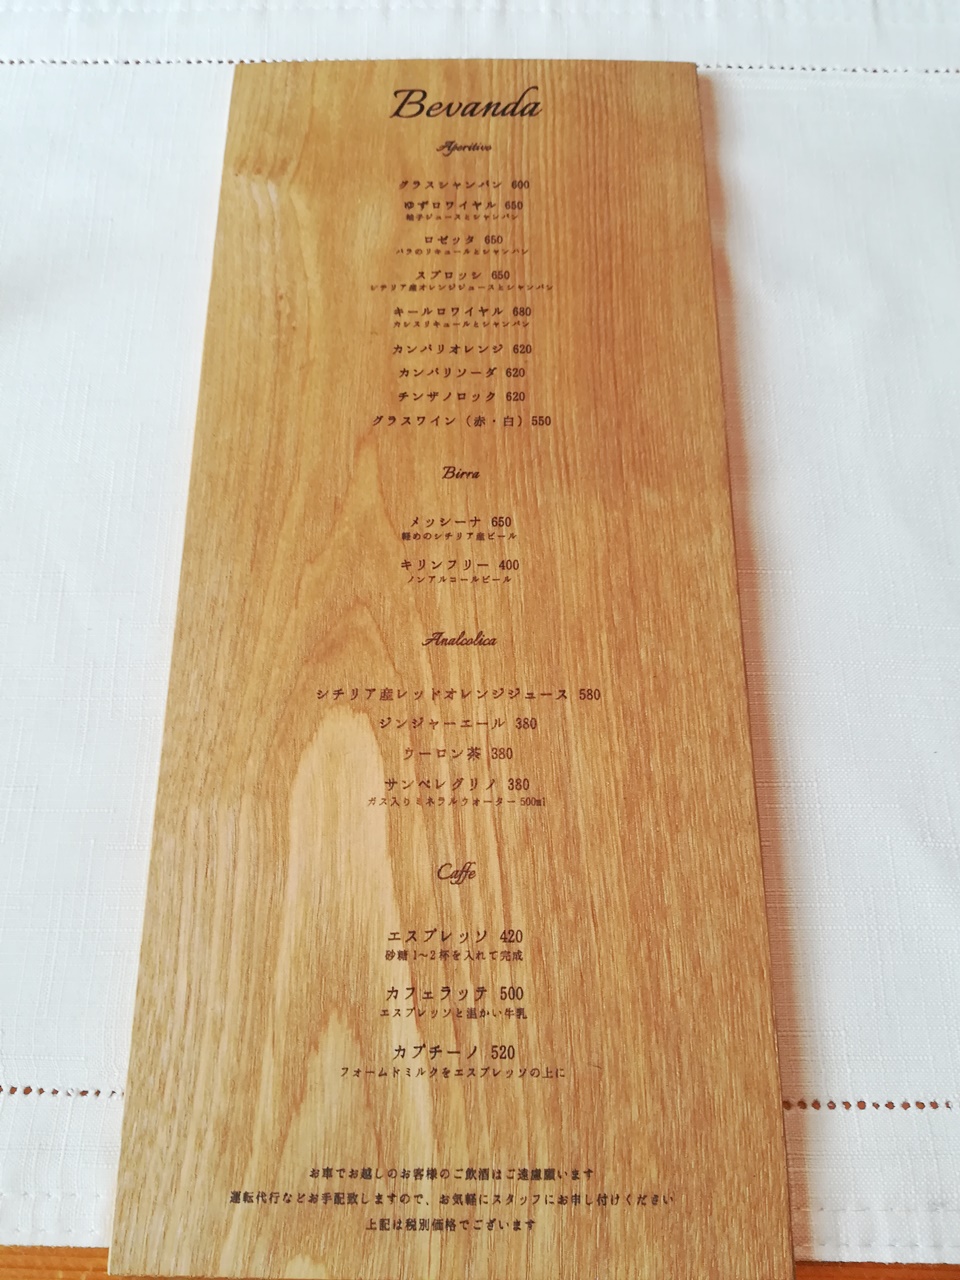 Bevanda
Aperitivo
グラスシャンパン 600
ゆずロワイヤル 650
柚子ジュースとシャンパン
ロゼッタ 650
バラのリキュールとシャンパン
スプロッシ 650
シチリア産オレンジジュースとシャンパン
キールロワイヤル 680
カシスリキュールとシャンパン
カンパリオレンジ 620
カンパリソーダ 620
チンザノロック 620
グラスワイン（赤・白）550
Birra
メッシーナ 650
軽めのシチリア産ビール
キリンフリー 400
ノンアルコールビール
Analcolica
シチリア産レッドオレンジジュース 580
ジンジャーエール 380
ウーロン茶 380
サンペレグリノ 380
ガス入りミネラルウォーター 500ml
Caffe
エスプレッソ 420
砂糖1〜2杯を入れて完成
カフェラッテ 500
エスプレッソと温かい牛乳
カプチーノ 520
フォームドミルクをエスプレッソの上に
お車でお越しのお客様のご飲酒はご遠慮願います
運転代行などお手配致しますので、お気軽にスタッフにお申し付けください
上記は税別価格でございます